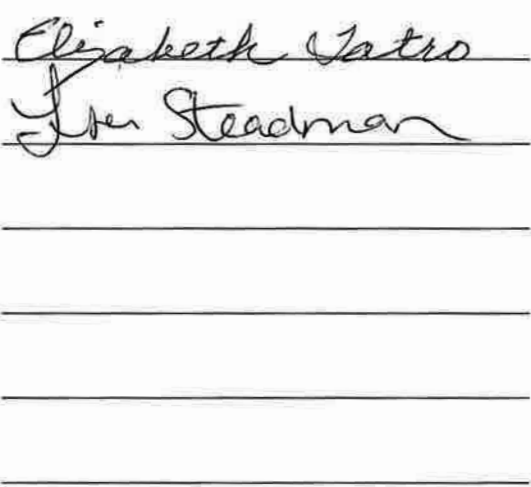 Elizabeth Tatro
Steadman